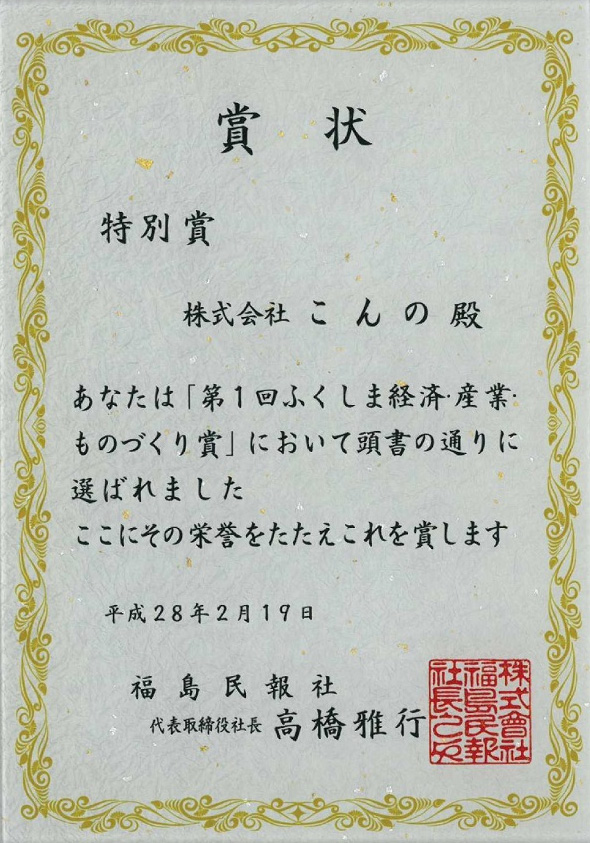 賞状
特別賞
株式会社 こんの 殿
あなたは「第1回ふくしま経済・産業・
ものづくり賞」において頭書の通りに
選ばれました
ここにその栄誉をたたえこれを賞します
平成28年2月19日
福島民報社
代表取締役社長 高橋雅行
株式會社
福島民報
社長之印